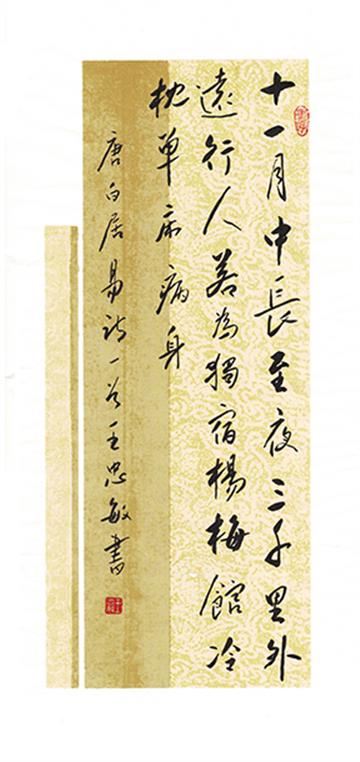 十一月中長至夜三千里外
遠行人若為獨宿楊梅館冷
枕單床病身
唐白居易詩一首王忠敏書